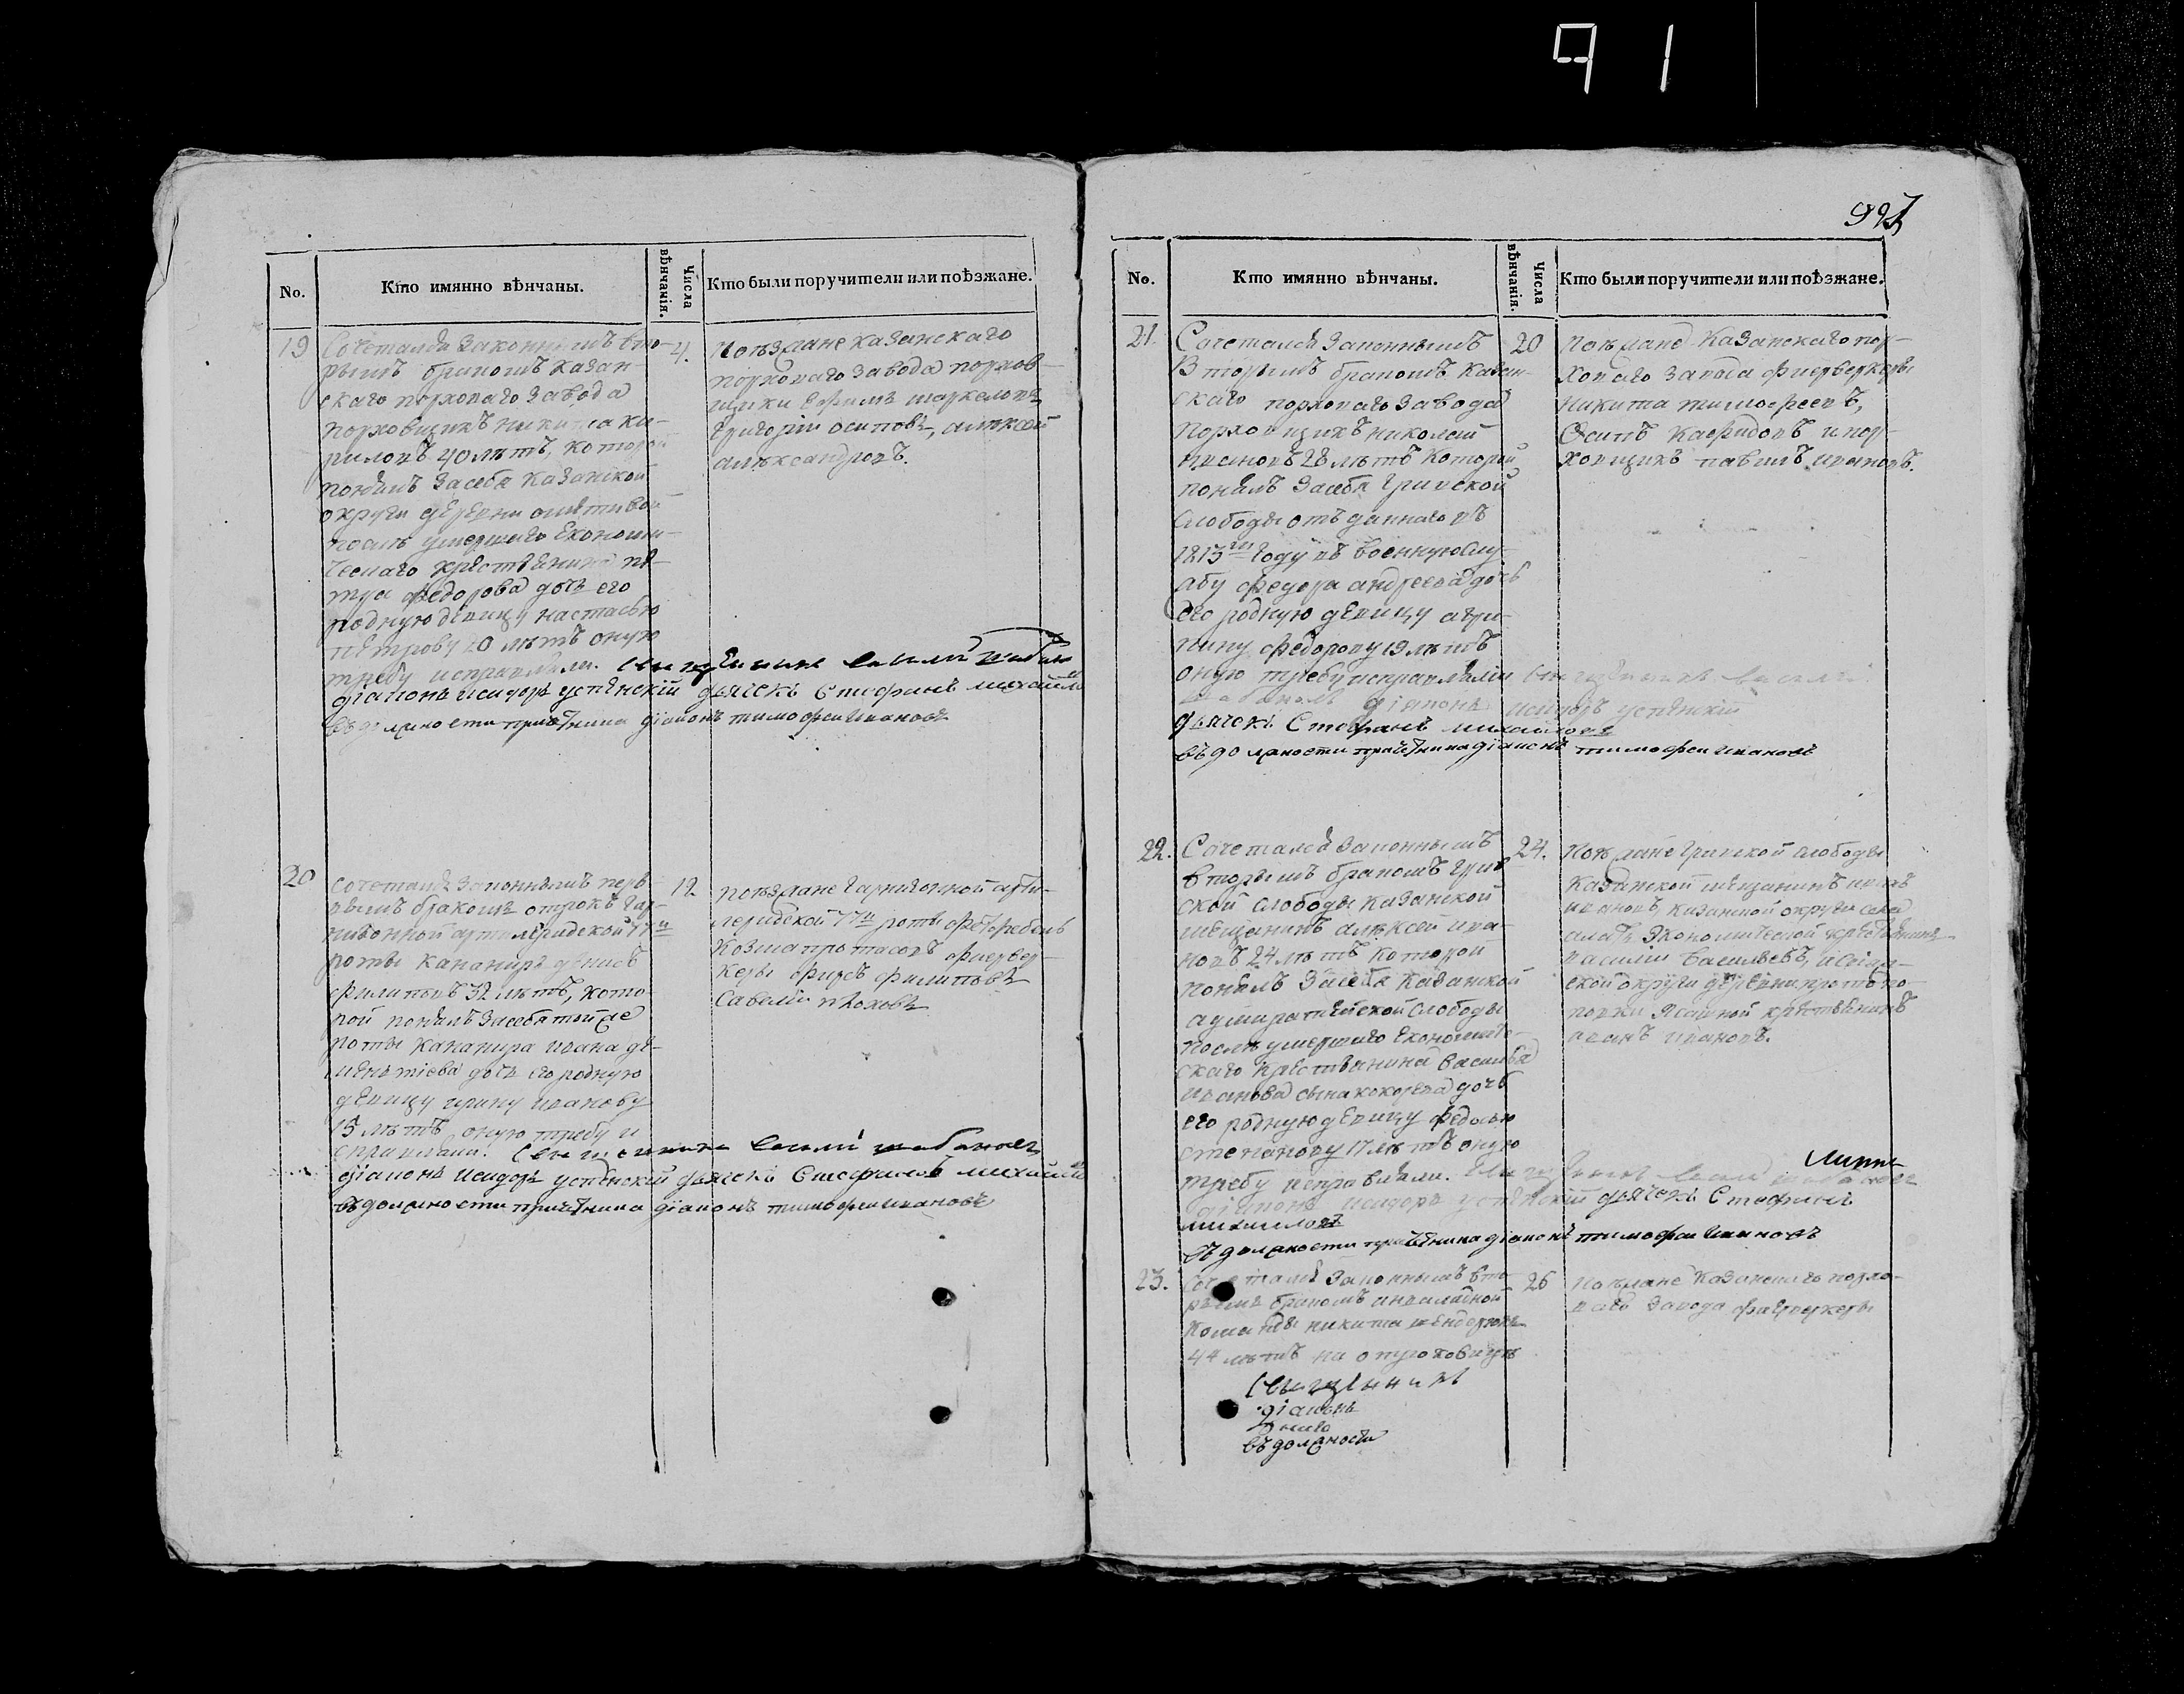 91
927
No.
Кто имянно вѣнчаны.
Числа вѣнчанія.
Кто были поручители или поѣзжане.
19
Сочетался законнымъ вто-
рымъ бракомъ казан-
скаго порховаго завода
порховщикъ никита ки-
риловъ 40 лѣтъ, которой
понялъ засебя казанской
округи деревни
послѣ умершаго Економи-
ческаго крестьянина пе-
тра федорова дочь его
родную девицу настасью
петрову 20 лѣтъ оную
требу исправляли. священникъ василий
діаконъ исидоръ успенскій дьячекъ Стефанъ михайловъ
въ должности причетника діаконъ тимофеи ивановъ
4.
Поѣзжане казанскаго
порховаго завода порхов-
щики ефимъ маркеловъ,
григорій осиповъ, алексей
александровъ.
20
сочетался законнымъ перв-
вымъ бракомъ отрокъ гар-
низонной артилеридской 77й
роты кананиръ денисъ
филиповъ 32 лѣтъ, кото-
рой понялъ засебя той же
роты кананира ивана де-
меньтіева дочь его родную
девицу ирину иванову
15 лѣтъ оную требу и
справляли. священникъ василий шабановъ
діаконъ исидоръ успенскій дьячекъ Стефанъ михайловъ
въ должности причетника діаконъ тимофеи ивановъ
12
поѣзжане гарнизонной арти-
леридской 77й роты
козма протасовъ фиервер-
керы фирсъ филиповъ
Савелій
No.
Кто имянно вѣнчаны.
Числа вѣнчанія.
Кто были поручители или поѣзжане.
21.
Сочетался законнымъ
Вторымъ бракомъ казан-
скаго порховаго завода
порховщикъ николай
ивановъ 28 лѣтъ которой
понялъ засебя гривской
слободы отъданнаго въ
1813м году въ военную слу-
жбу федора андреева дочь
его родную девицу агри-
пину федорову 19 лѣтъ
оную требу исправляли священникъ василий
шабановъ діаконъ исидоръ успенскій
дьячекъ Стефанъ михайловъ
въ должности причетника діаконъ тимофеи ивановъ
20
поѣзжане казанскаго пор-
ховаго завода фиерверкеры
никита тимофеевъ,
Осипъ и пор-
ховщикъ павилъ ивановъ.
22.
Сочетался законнымъ
вторымъ бракомъ грив-
ской слободы казанской
мещанинъ алексей ива-
новъ 24 лѣтъ которой
понялъ засебя казанской
адмиралтейской слободы
послѣ умершаго Економиче-
скаго крестьянина василья
иванова сына кокорева дочь
его родную девицу федосью
степанову 17 лѣтъ оную
требу исправляли. священникъ василий шабановъ
діаконъ исидоръ успенскій дьячекъ Стефанъ
михайловъ
въ должности причетника діаконъ тимофеи ивановъ
24.
Поѣзжане гривской слободы
казанской мещанинъ
ивановъ, казанской округи села
Экономической крестьянинъ
василий васильевъ,
ской округи деревни
ясашной крестьянинъ
иванъ ивановъ.
23.
Сочетался законнымъ вто-
рымъ бракомъ инвалидной
команды никита
44 лѣтъ на
священникъ
діаконъ
въ должности
26
поѣзжане казанскаго порхо-
ваго завода фиерверкеры